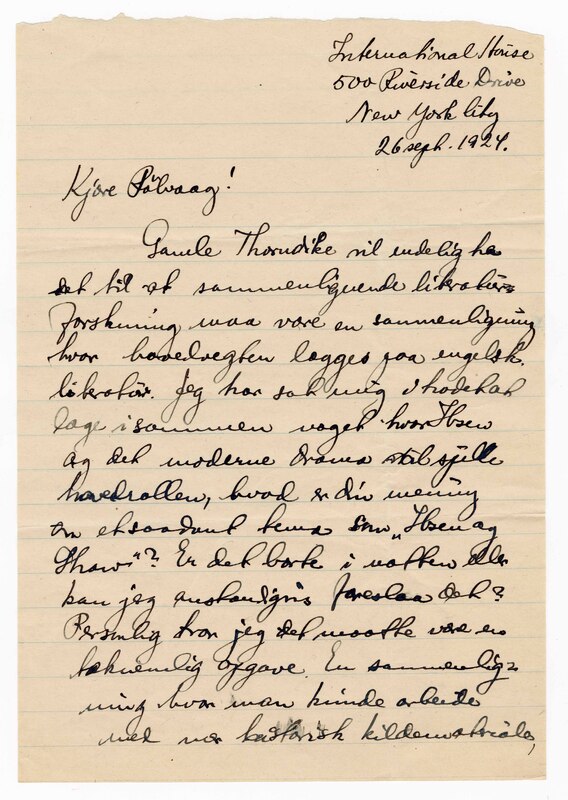 International House
500 Riverside Drive
New York City
26 sept. 1924.
Kjære Rølvaag!
Gamle Thorndike vil endelig ha
det til at sammenlignende literatur-
forskning maa være en sammenligning
hvor hovedvegten lægges paa engelsk
literatur. Jeg har sat mig i hodet at
lage isammen noget hvor Ibsen
og det moderne drama skal spille
hovedrollen, hvad er din mening
om et saadant tema som „Ibsen og
Shaw"? Er det borte i natten eller
kan jeg anstændigvis foreslaa det?
Personlig tror jeg det maatte være en
taknemlig opgave. En sammenlig-
ning hvor man kunde arbeide
med historisk kildemateriale,